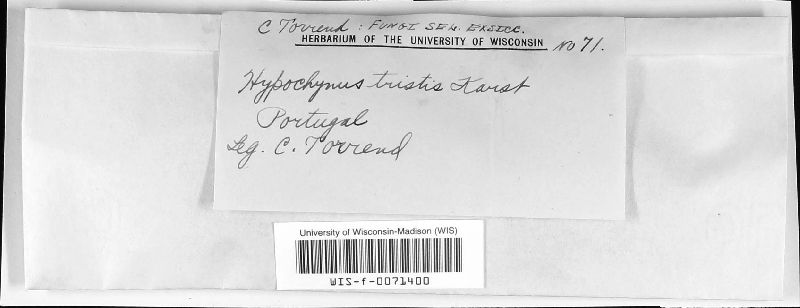 C Torrend : FUNGI SEL. EXSICC.
HERBARIUM OF THE UNIVERSITY OF WISCONSIN No 71.
Hypochynus tristis Karst
Portugal
Leg. C. Torrend
University of Wisconsin-Madison (WIS)
WIS-f-0071400